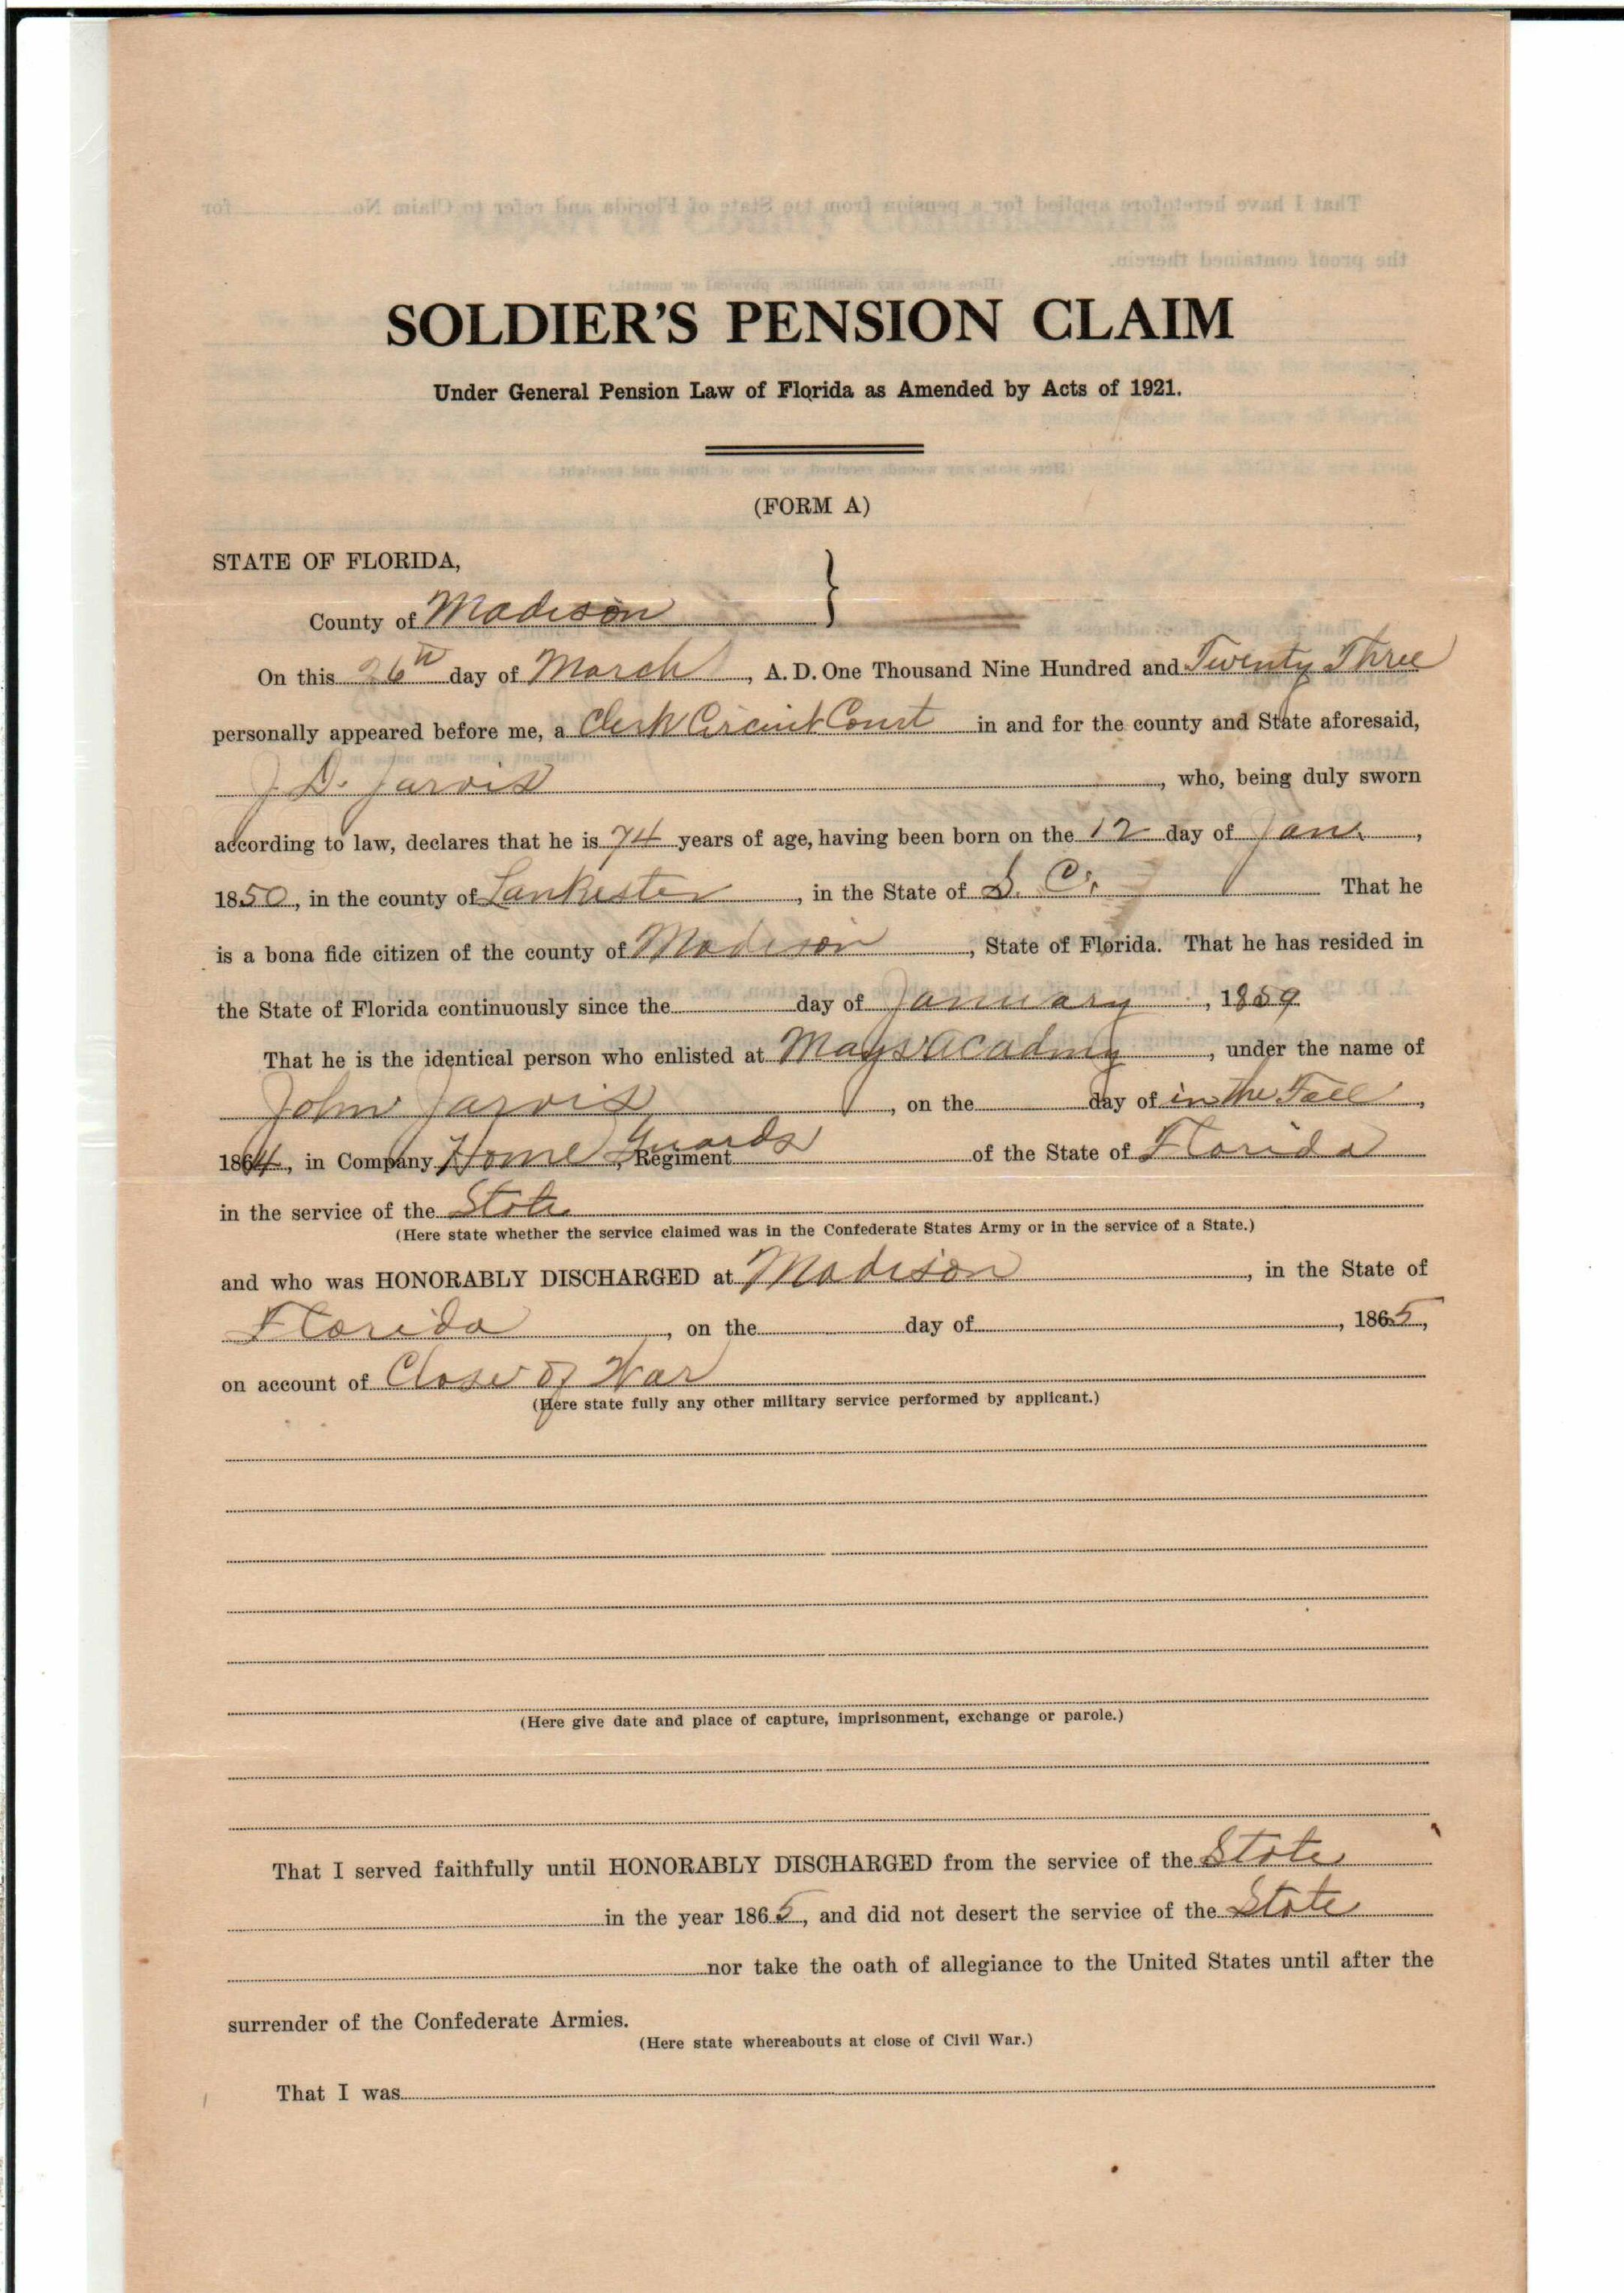 SOLDIER'S PENSION CLAIM
Under General Pension Law of Florida as Amended by Acts of 1921.
(FORM A)
STATE OF FLORIDA,
County of Madison }
On this 26th day of March, A. D. One Thousand Nine Hundred and Twenty Three
personally appeared before me, a Clerk Circuit Court in and for the county and State aforesaid,
J. D. Jarvis, who, being duly sworn
according to law, declares that he is 74 years of age, having been born on the 12 day of Jan,
1850, in the county of Lankester, in the State of S. C. That he
is a bona fide citizen of the county of Madison, State of Florida. That he has resided in
the State of Florida continuously since the day of January, 1859
That he is the identical person who enlisted at Mays Acadmy, under the name of
John Jarvis, on the day of in the Fall,
1864, in Company Home Guards, Regiment of the State of Florida
in the service of the State
(Here state whether the service claimed was in the Confederate States Army or in the service of a State.)
and who was HONORABLY DISCHARGED at Madison, in the State of
Florida, on the day of, 1865,
on account of Close of War
(Here state fully any other military service performed by applicant.)
(Here give date and place of capture, imprisonment, exchange or parole.)
That I served faithfully until HONORABLY DISCHARGED from the service of the State
in the year 1865, and did not desert the service of the State
nor take the oath of allegiance to the United States until after the
surrender of the Confederate Armies.
(Here state whereabouts at close of Civil War.)
That I was